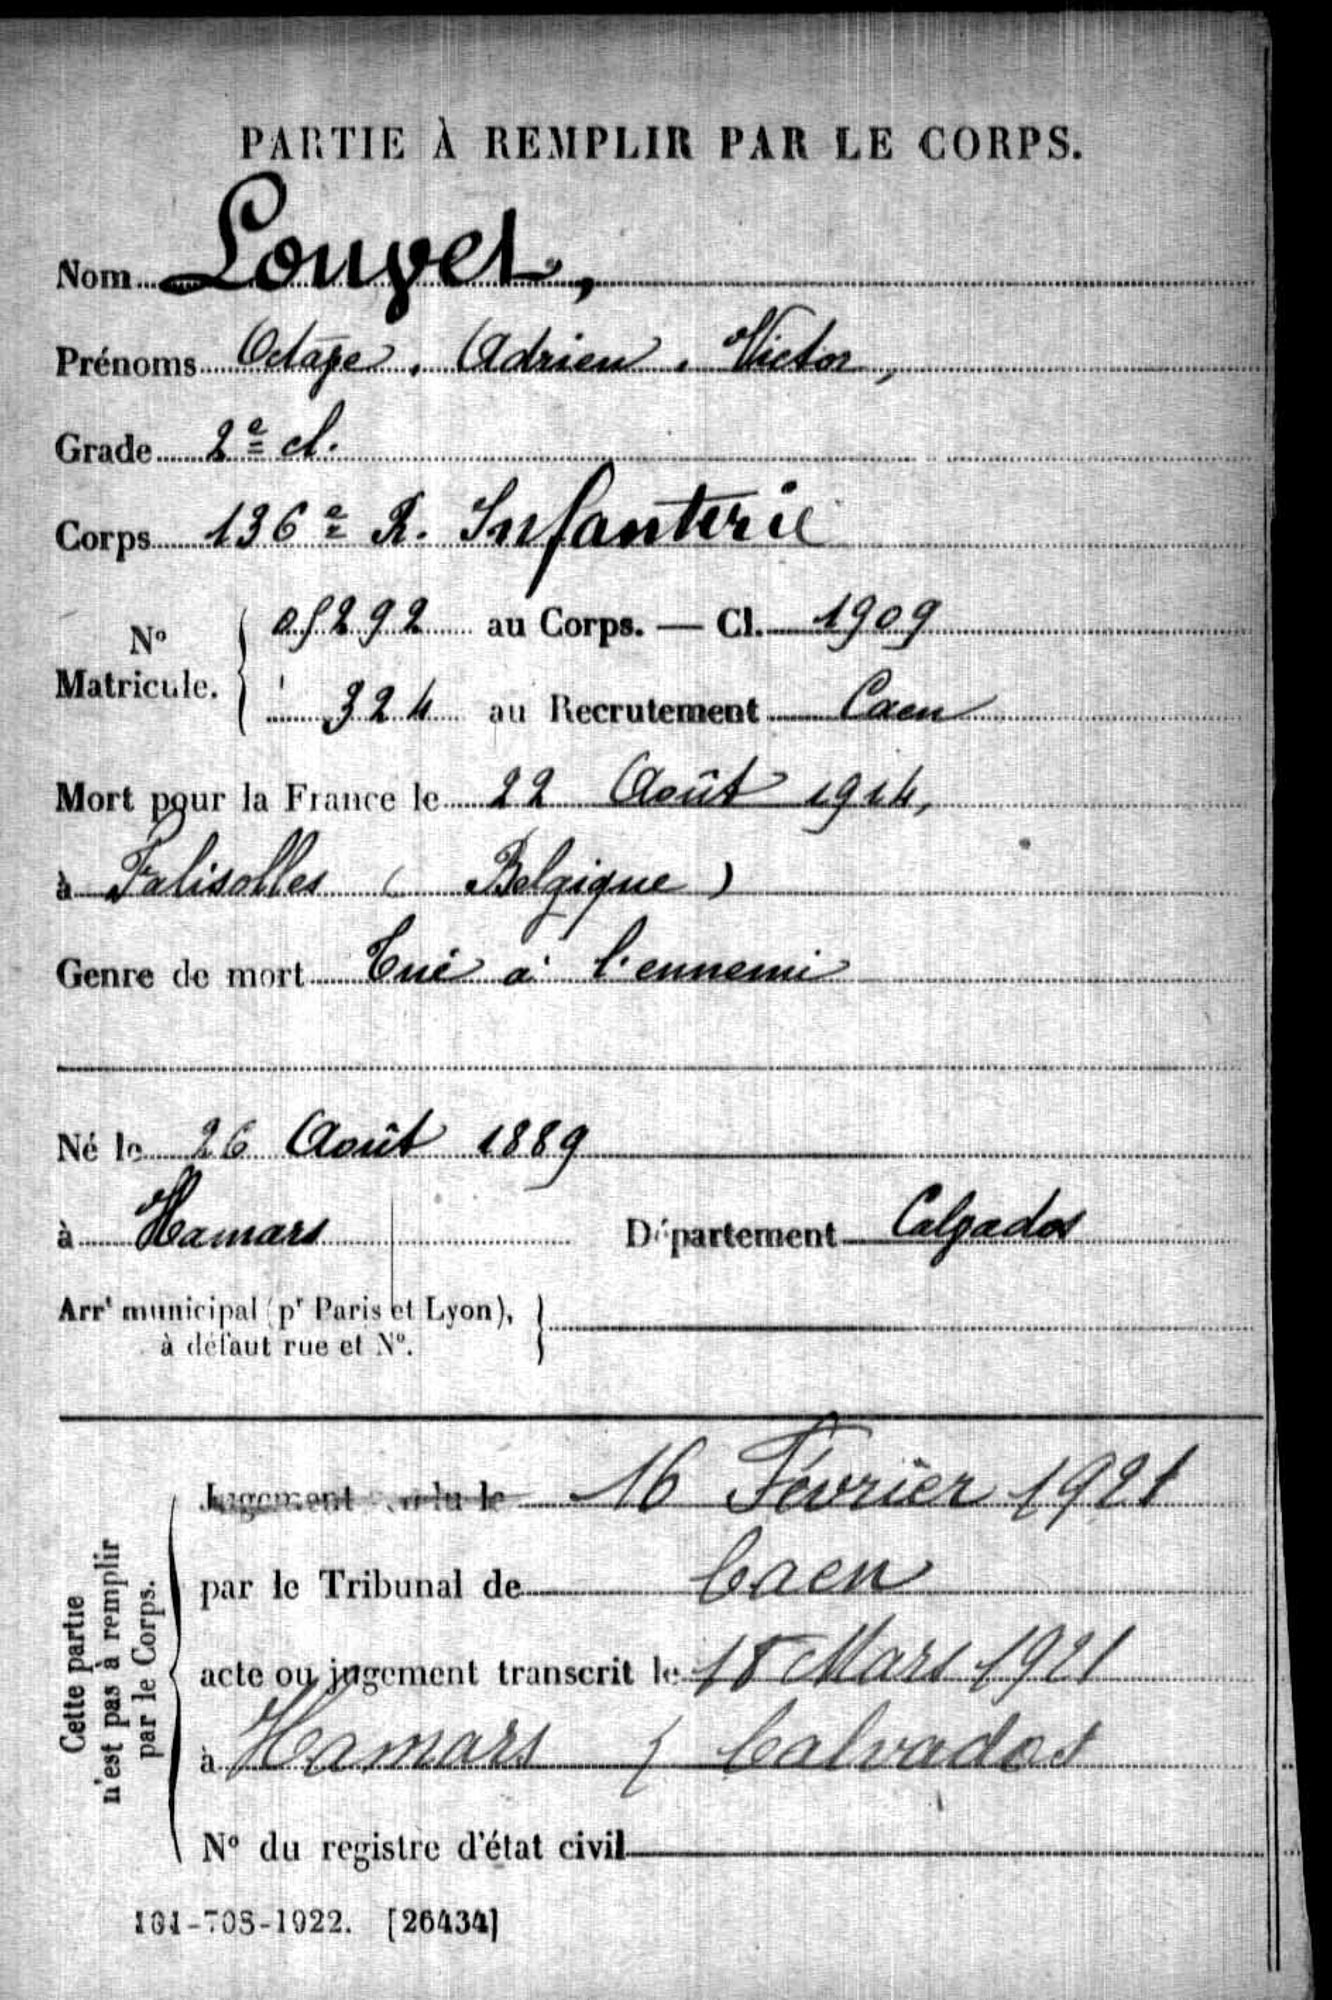 PARTIE À REMPLIR PAR LE CORPS.
Nom Louvet,
Prénoms Octave, Adrien, Victor,
Grade 2e cl.
Corps 136e R. Infanterie
No Matricule. { 05292 au Corps. — Cl. 1909
324 au Recrutement Caen
Mort pour la France le 22 Août 1914,
à Falisolles (Belgique)
Genre de mort Tué à l'ennemi
Né le 26 Août 1889
à Hamars Département Calvados
Arrt municipal (pr Paris et Lyon), }
à défaut rue et No.
Cette partie
n'est pas à remplir
par le Corps.
Jugement rendu le 16 Février 1921
par le Tribunal de Caen
acte ou jugement transcrit le 18 Mars 1921
à Hamars ( Calvados
No du registre d'état civil
101-708-1922. [26434]